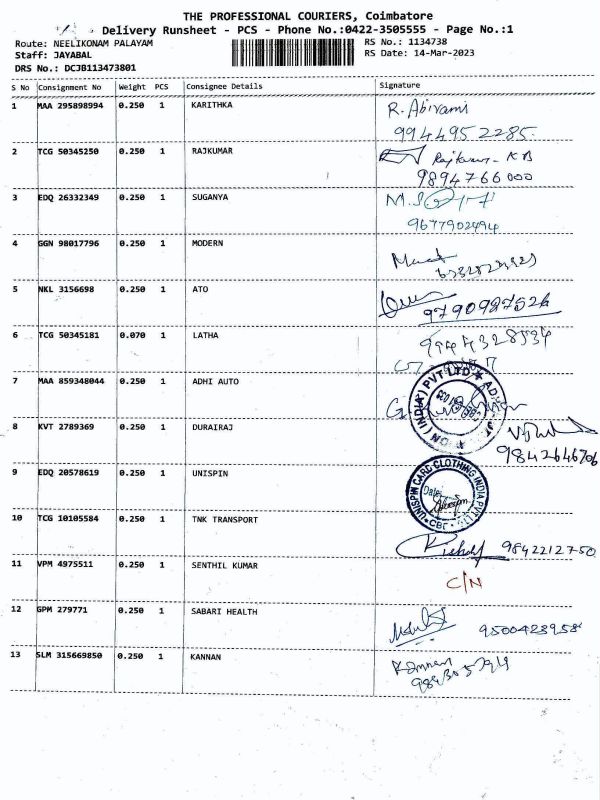 THE PROFESSIONAL COURIERS, Coimbatore
Delivery Runsheet - PCS - Phone No.:0422-3505555 - Page No.:1
Route: NEELIKONAM PALAYAM
RS No.: 1134738
Staff: JAYABAL
RS Date: 14-Mar-2023
DRS No.: DCJB113473801
S No Consignment No Weight PCS Consignee Details Signature
1 MAA 295898994 0.250 1 KARITHKA R. Abirami
9944952285.
2 TCG 50345250 0.250 1 RAJKUMAR
9894766000
3 EDQ 26332349 0.250 1 SUGANYA
9677902494
4 GGN 98017796 0.250 1 MODERN
5 NKL 3156698 0.250 1 ATO
9790927526
6 TCG 50345181 0.070 1 LATHA 9944328534
7 MAA 859348044 0.250 1 ADHI AUTO
(INDIA) PVT LTD
8 KVT 2789369 0.250 1 DURAIRAJ
9842646706
9 EDQ 20578619 0.250 1 UNISPIN
UNISPIN CARD CLOTHING INDIA PVT LTD
Date:
CBE
10 TCG 10105584 0.250 1 TNK TRANSPORT
9842212750
11 VPM 4975511 0.250 1 SENTHIL KUMAR
C/N
12 GPM 279771 0.250 1 SABARI HEALTH
9500423958
13 SLM 315669850 0.250 1 KANNAN Kannan